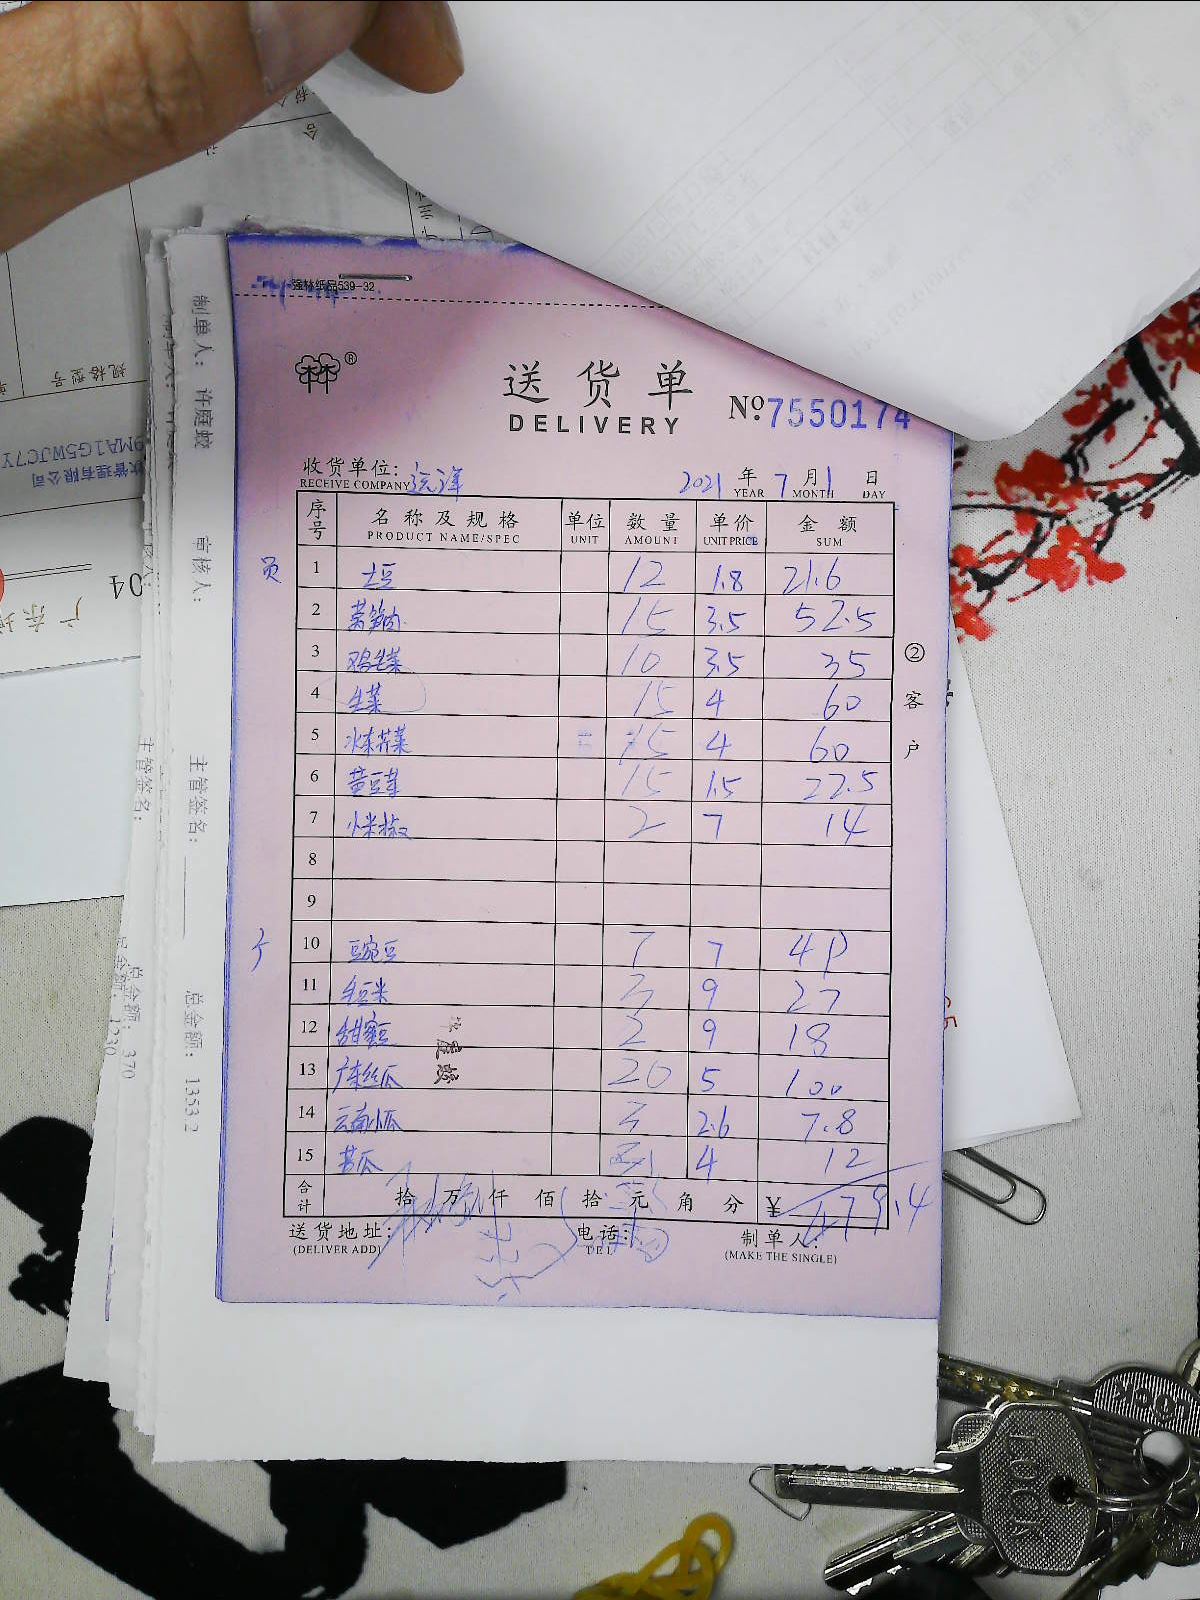 强林纸品539-32
送货单
DELIVERY
№ 7550174
收货单位: 远洋 2021 年 7 月 1 日
RECEIVE COMPANY YEAR MONTH DAY
序号 名称及规格 单位 数量 单价 金额
PRODUCT NAME/SPEC UNIT AMOUNT UNIT PRICE SUM
员 1 土豆 12 1.8 21.6
2 莴笋肉 15 3.5 52.5
3 鸡毛菜 10 3.5 35
4 生菜 15 4 60
5 冰冻荠菜 15 4 60
6 黄豆芽 15 1.5 22.5
7 小米椒 2 7 14
8
9
10 豌豆 7 7 49
11 毛豆米 3 9 27
12 甜蜜豆 2 9 18
13 广东丝瓜 20 5 100
14 云南小瓜 3 2.6 7.8
15 苦瓜 4 12
合计 拾 万 仟 佰 拾 元 角 分 ¥ 479.4
送货地址: 电话: 制单人:
(DELIVER ADD) TEL (MAKE THE SINGLE)
② 客户
制单人: 许庭蛟
审核人:
主管签名:
总金额: 1353.2
主管签名:
总金额: 370
总金额: 1230
规格型号
9MA1G5WJC7Y
饮管理有限公司
广东
04
LOCK
LOCK